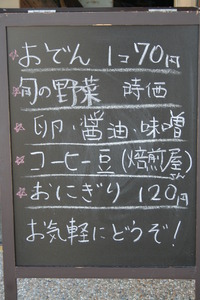 ☆おでん 1コ70円
☆旬の野菜 時価
☆卵・醤油・味噌
☆コーヒー豆(焙煎屋さん)
☆おにぎり 120円
お気軽にどうぞ!